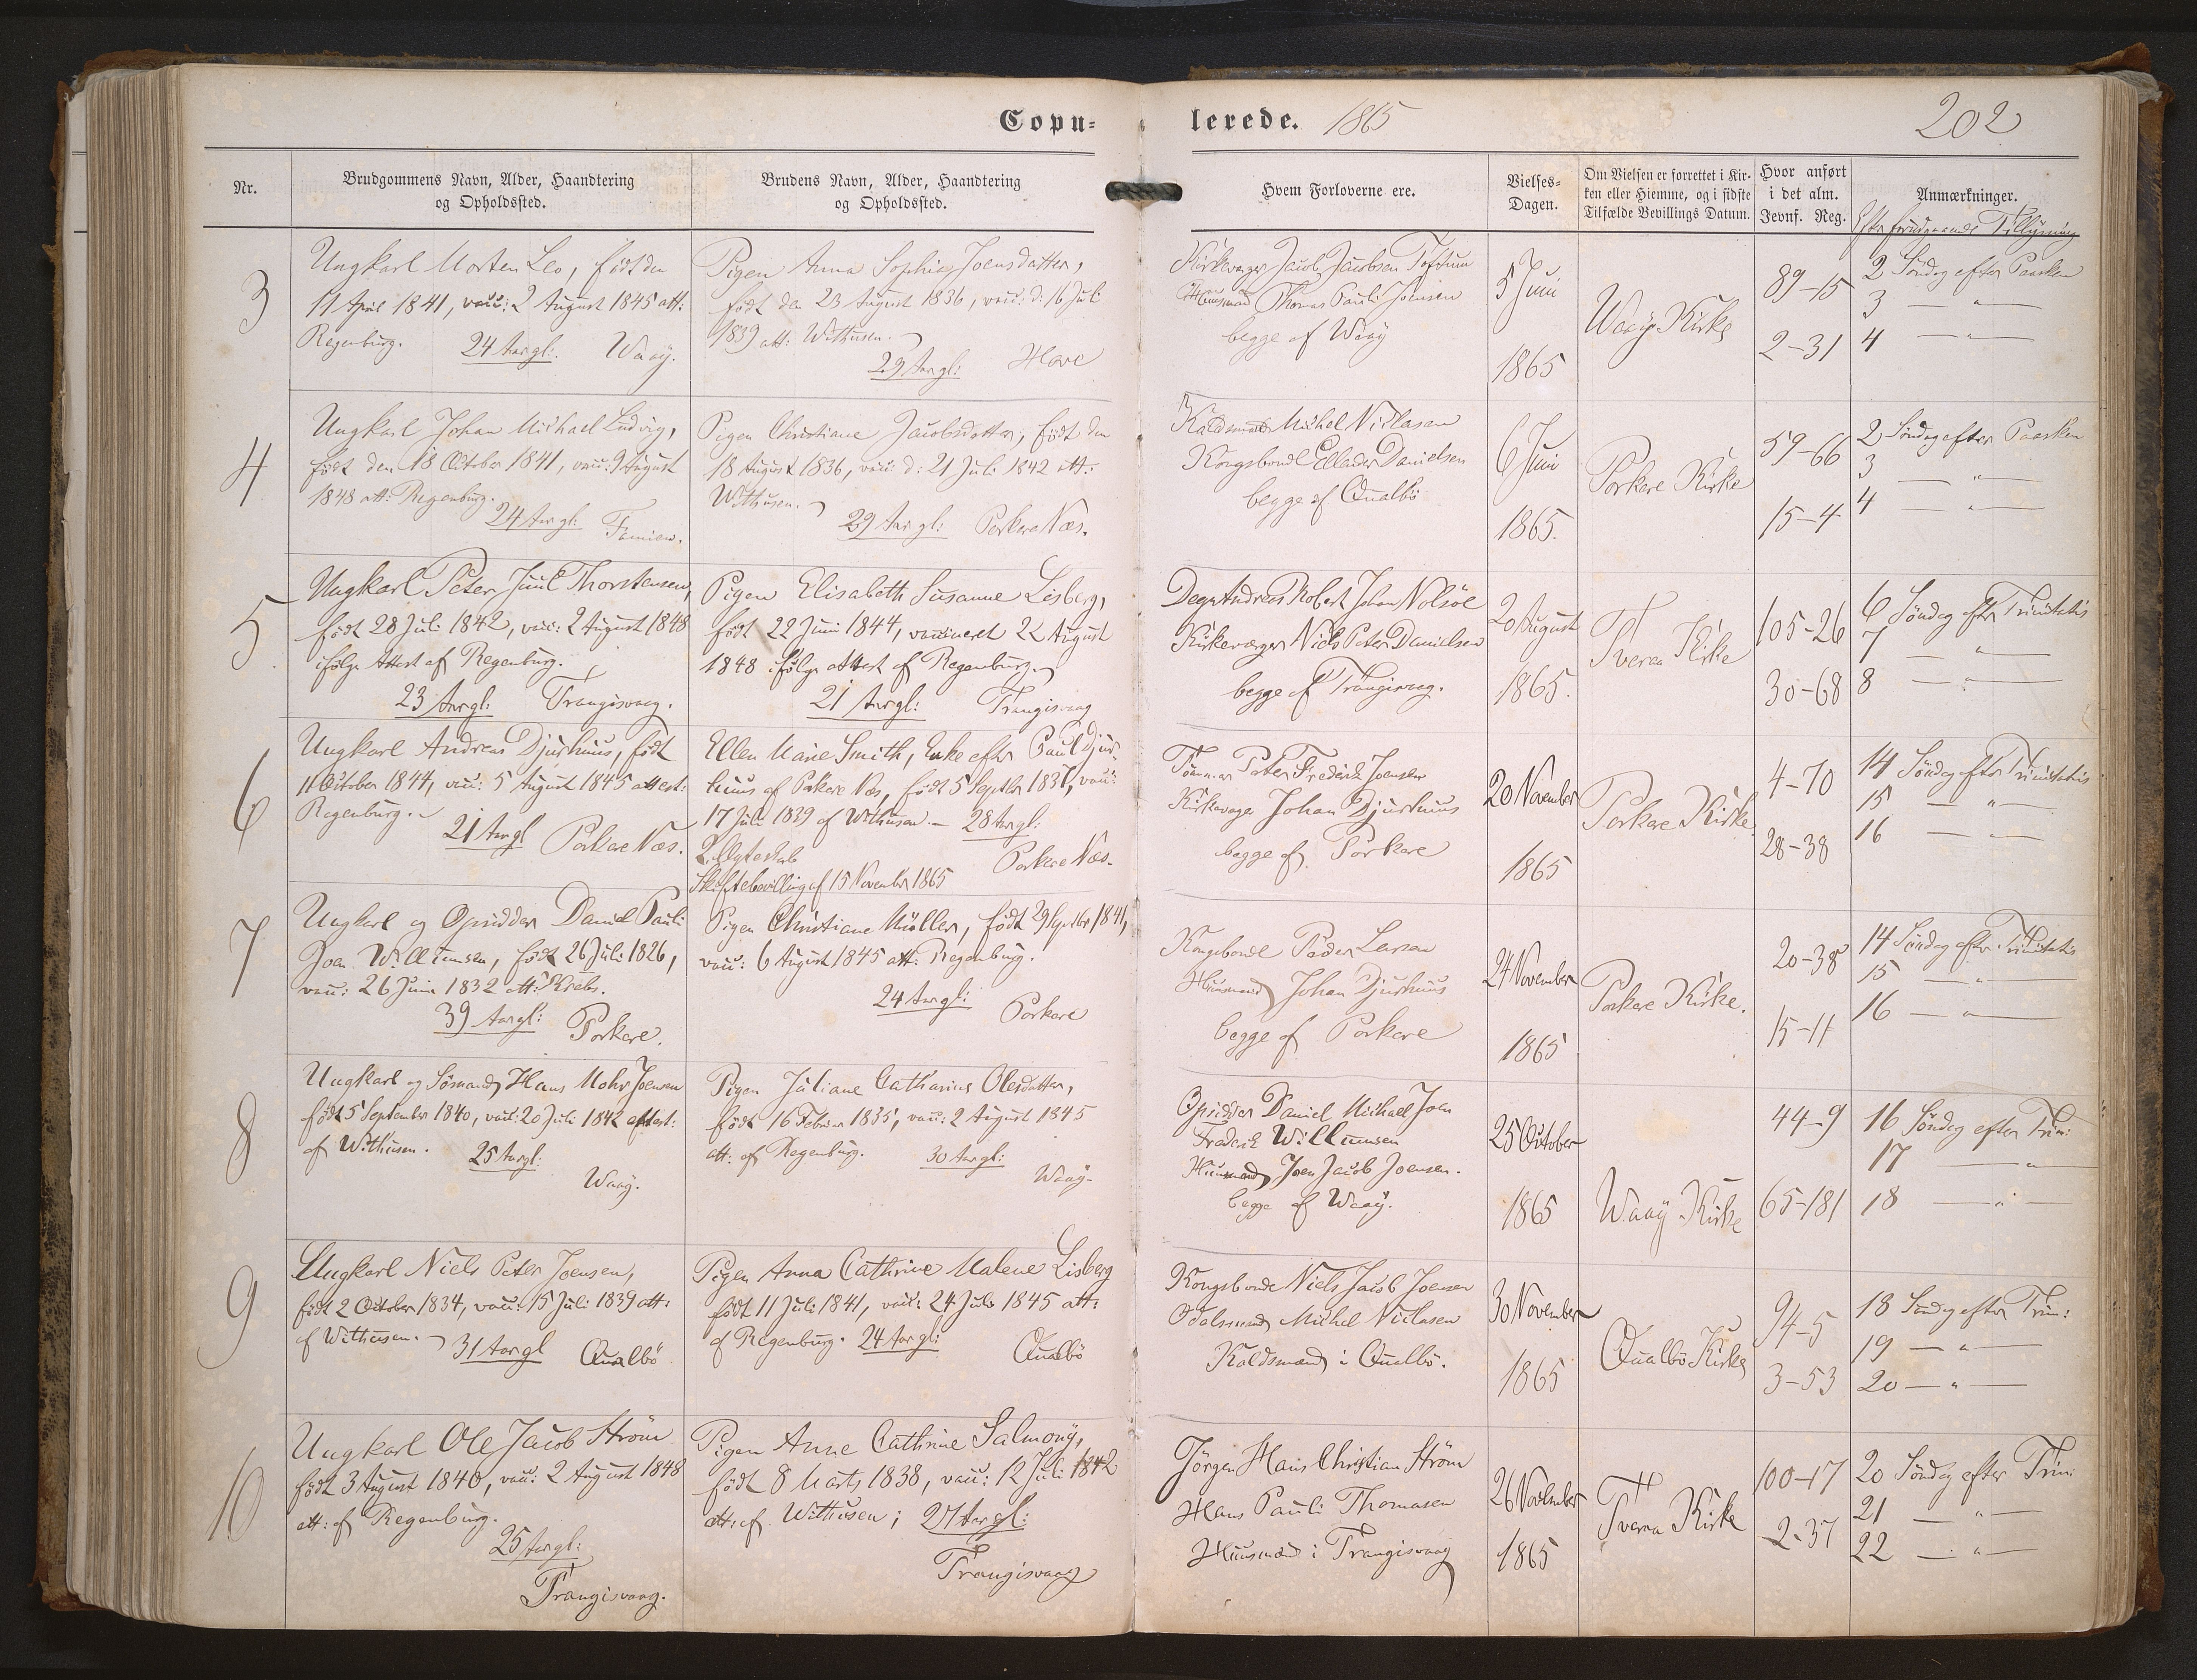 Copu-
lerede. 1865
202
Nr.
Brudgommens Navn, Alder, Haandtering
og Opholdssted.
Brudens Navn, Alder, Haandtering
og Opholdssted.
Hvem Forloverne ere.
Vielses-
Dagen.
Om Vielsen er forrettet i Kir-
ken eller Hiemme, og i sidste
Tilfælde Bevillings Datum.
Hvor anført
i det alm.
Jevnf. Reg.
Anmærkninger.
Efter foregaaende Tillysning
3
Ungkarl Morten Leo, født den
11 April 1841, vacc: 2 August 1845 att:
Regenburg. 24 Aar gl: Waaÿ.
Pigen Anna Sophia Joensdatter,
født den 23 August 1836, vacc: d: 16 Juli
1839 att: Withusen.
29 Aar gl: Hove
Kirkeværger Jacob Jacobsen Toftum
Huusmand Thomas Pauli Joensen
begge af Waaÿ
5 Juni
1865
Waaÿ Kirke
89-15
2-31
2 Søndag efter Paasken
3 — " —
4 — " —
4
Ungkarl Johan Michael Ludvig,
født den 18 October 1841, vacc: 9 August
1848 att: Regenburg.
24 Aar gl: Famien.
Pigen Christiane Jacobsdatter, født den
18 August 1836, vacc: d: 21 Juli 1842 att:
Withusen.
29 Aar gl: Porkere Næs.
Kaldsmand Michel Niclasen
Kongsbonde Ellender Danielsen
begge af Qualbö
6 Juni
1865.
Porkere Kirke
59-66
15-4
2 Søndag efter Paasken
3 — " —
4 — " —
5
Ungkarl Peter Juul Thorstensen,
født 28 Juli 1842, vacc: 2 August 1848
ifølge Attest af Regenburg.
23 Aar gl: Trangisvaag.
Pigen Elisabeth Susanne Lisberg,
født 22 Juni 1844, vaccineret 22 August
1848 ifølge attest af Regenburg.
21 Aar gl: Trangisvaag
Degn Andreas Robert Johan Nolsöe
Kirkeværger Niels Peter Danielsen
begge af Trangisvaag.
20 August
1865.
Tveraa Kirke
105-26
30-68
6 Søndag efter Trinitatis
7 — " —
8 — " —
6
Ungkarl Andreas Djurhuus, født
11 October 1844, vacc: 5 August 1845 attest:
Regenburg.
21 Aar gl Porkere Næs.
Ellen Marie Smith, Enke efter Paul Djur-
huus af Porkere Næs, født 5 Septbr 1837, vacc:
17 Juli 1839 af Withusen — 28 Aar gl:
2. Ægteskab Porkere Næs.
Skiftebevilling af 15 November 1865
Peter Frederik Joensen
Kirkeværger Johan Djurhuus
begge af Porkere
20 November
1865
Porkere Kirke
4-70
28-38
14 Søndag efter Trinitatis
15 — " —
16 — " —
7
Ungkarl og Opsidder Daniel Pauli
Joen Willumsen, født 26 Juli 1826,
vacc: 26 Juni 1832 att: Krebs.
39 Aar gl: Porkere.
Pigen Christiane Müller, født 29 Septbr 1841,
vacc: 6 August 1845 att: Regenburg.
24 Aar gl: Porkere
Kongsbonde Peder Larsen
Huusmand Johan Djurhuus
begge af Porkere
24 November
1865
Porkere Kirke.
20-38
15-11
14 Søndag efter Trinitatis
15 — " —
16 — " —
8
Ungkarl og Sömand Hans Mohr Joensen
født 5 September 1840, vacc: 20 Juli 1842 attest:
af Withusen. 25 Aar gl:
Waaÿ.
Pigen Juliane Catharine Olesdatter,
født 16 Februar 1835, vacc: 2 August 1845
att: af Regenburg. 30 Aar gl:
Waaÿ.
Opsidder Daniel Michael Joen
Frederik Willumsen
Huusmand Joen Jacob Joensen.
begge af Waaÿ.
25 October
1865
Waaÿ Kirke
44-9
65-181
16 Søndag efter Trin:
17 — " —
18 — " —
9
Ungkarl Niels Peter Joensen,
født 2 October 1834, vacc: 15 Juli 1839 att:
af Withusen. 31 Aar gl Qualbö
Pigen Anna Cathrine Malene Lisberg
født 11 Juli 1841, vacc: 24 Juli 1845 att:
af Regenburg. 24 Aar gl: Qualbö
Kongsbonde Niels Jacob Joensen
Odelsmand Michel Niclasen
Kaldsmand i Qualbö.
30 November
1865
Qualbö Kirke
94-5
3-53
18 Søndag efter Trin:
19 — " —
20 — " —
10
Ungkarl Ole Jacob Ström
født 3 August 1840, vacc: 2 August 1848
att: af Regenburg.
25 Aar gl:
Trangisvaag.
Pigen Anne Cathrine Salmonÿ,
født 8 Marts 1838, vacc: 12 Juli 1842
att: af Withusen; 27 Aar gl:
Trangisvaag
Jørgen Hans Christian Ström
Hans Pauli Thomasen
Huusmænd i Trangisvaag
26 November
1865
Tveraa Kirke
100-17
2-37
20 Søndag efter Trin:
21 — " —
22 — " —